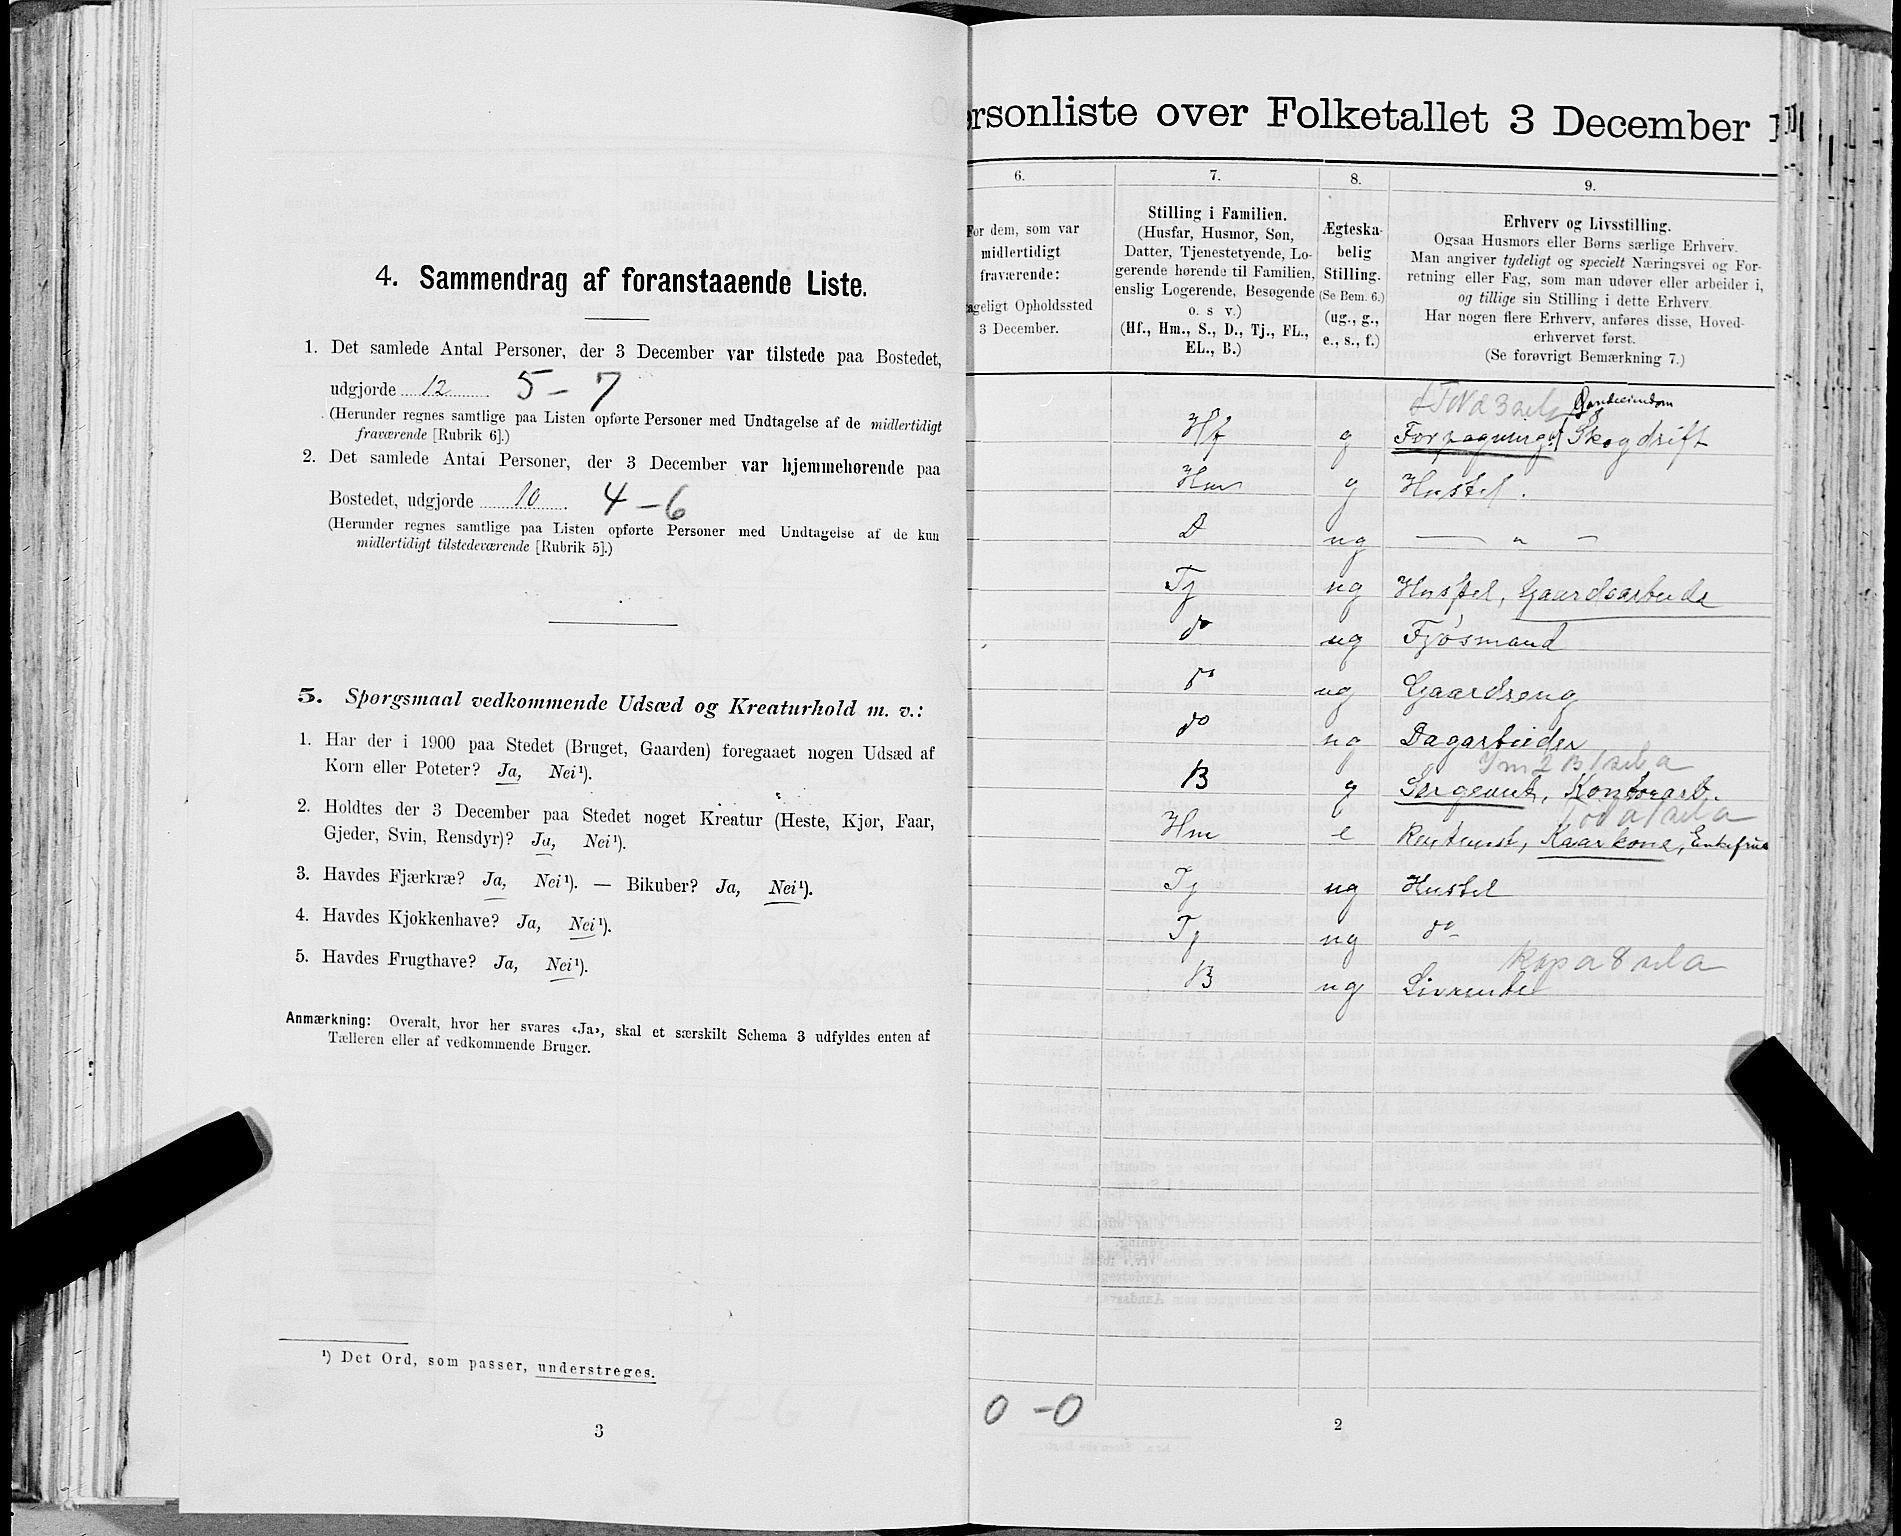 4. Sammendrag af foranstaaende Liste.
1. Det samlede Antal Personer, der 3 December var tilstede paa Bostedet,
udgjorde 12 5 - 7
(Herunder regnes samtlige paa Listen opførte Personer med Undtagelse af de midlertidigt
fraværende [Rubrik 6].)
2. Det samlede Antal Personer, der 3 December var hjemmehørende paa
Bostedet, udgjorde 10. 4 - 6
(Herunder regnes samtlige paa Listen opførte Personer med Undtagelse af de kun
midlertidigt tilstedeværende [Rubrik 5].)
5. Spørgsmaal vedkommende Udsæd og Kreaturhold m. v.:
1. Har der i 1900 paa Stedet (Bruget, Gaarden) foregaaet nogen Udsæd af
Korn eller Poteter? Ja, Nei¹).
2. Holdtes der 3 December paa Stedet noget Kreatur (Heste, Kjør, Faar,
Gjeder, Svin, Rensdyr)? Ja, Nei¹).
3. Havdes Fjærkræ? Ja, Nei¹). — Bikuber? Ja, Nei¹).
4. Havdes Kjøkkenhave? Ja, Nei¹).
5. Havdes Frugthave? Ja, Nei¹).
Anmærkning: Overalt, hvor her svares «Ja», skal et særskilt Schema 3 udfyldes enten af
Tælleren eller af vedkommende Bruger.
¹) Det Ord, som passer, understreges.
4 - 6 1 -
3
ersonliste over Folketallet 3 December 1
6.
For dem, som var
midlertidigt
fraværende:
ageligt Opholdssted
3 December.
7.
Stilling i Familien.
(Husfar, Husmor, Søn,
Datter, Tjenestetyende, Lo-
gerende hørende til Familien,
enslig Logerende, Besøgende
o. s v.)
(Hf., Hm., S., D., Tj., FL.,
EL., B.)
8.
Ægteska-
belig
Stilling.
(Se Bem. 6.)
(ug., g.,
e., s., f.)
9.
Erhverv og Livsstilling.
Ogsaa Husmors eller Børns særlige Erhverv.
Man angiver tydeligt og specielt Næringsvei og For-
retning eller Fag, som man udøver eller arbeider i,
og tillige sin Stilling i dette Erhverv.
Har nogen flere Erhverv, anføres disse, Hoved-
erhvervet først.
(Se forøvrigt Bemærkning 7.)
Hf g Skogdrift
Hm g Hustel.
D ug — " —
Tj ug Hustel, Gaardsarbeide
do ug Fjøsmand
do ug Gaardsdreng
do ug Dagarbeider
B g Sergeant, Kontorarb.
Hm e Rentenist, Kaarkone, Enkefrue
Tj ug Hustel
Tj ug do
B ug Livrente
0 - 0
2